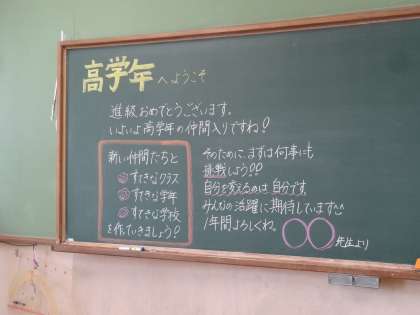 高学年へようこそ
進級おめでとうございます。
いよいよ高学年の仲間入りですね!
新しい仲間たちと
◎すてきなクラス
◎すてきな学年
◎すてきな学校
を作っていきましょう!
そのために、まずは何事にも
挑戦しよう!!
自分を変えるのは自分です。
みんなの活躍に期待しています^^
1年間よろしくね。
〇〇先生より